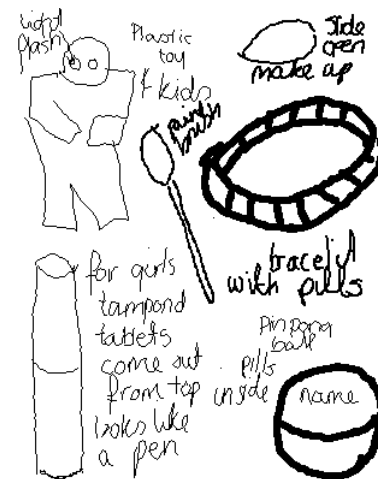 flash
Plastic
toy
4 kids
slide
open
make up
brush
with pills
for girls
tampond
tablets
come out
from top
looks like
a pen
pin pong
ball
pills
inside
name